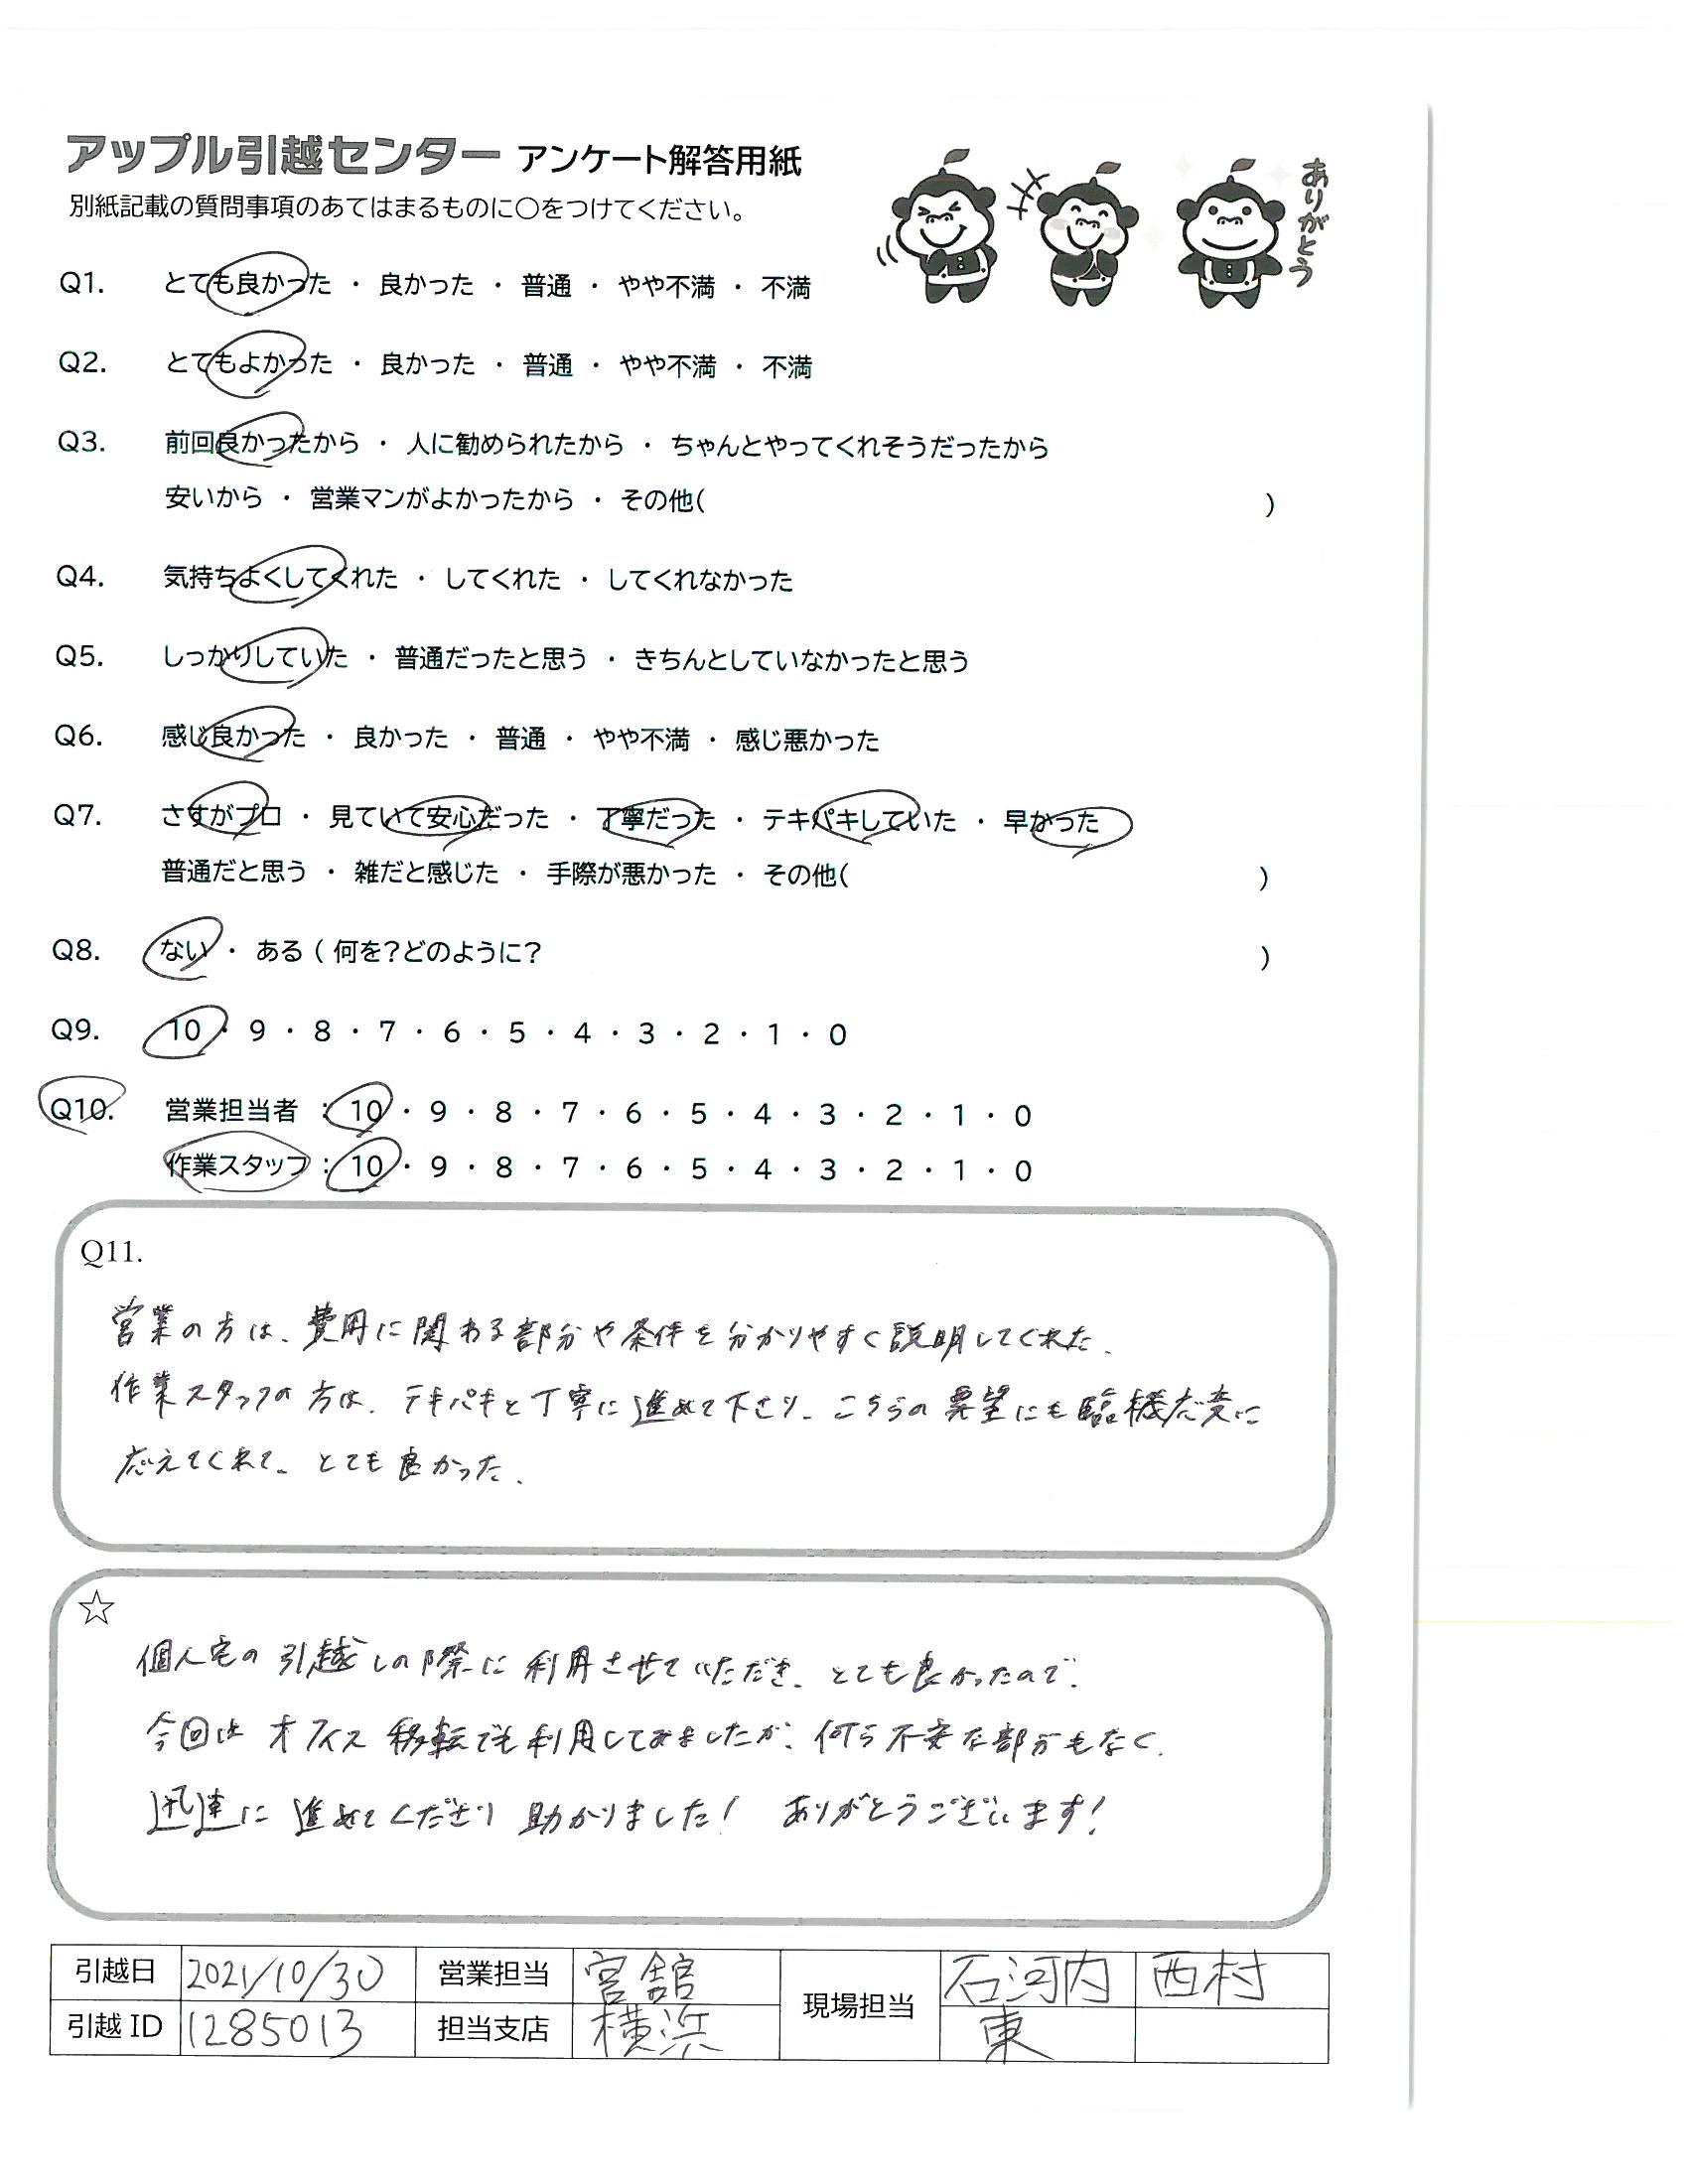 アップル引越センター アンケート解答用紙
別紙記載の質問事項のあてはまるものに〇をつけてください。
ありがとう
Q1. とても良かった ・ 良かった ・ 普通 ・ やや不満 ・ 不満
Q2. とてもよかった ・ 良かった ・ 普通 ・ やや不満 ・ 不満
Q3. 前回良かったから ・ 人に勧められたから ・ ちゃんとやってくれそうだったから
安いから ・ 営業マンがよかったから ・ その他( )
Q4. 気持ちよくしてくれた ・ してくれた ・ してくれなかった
Q5. しっかりしていた ・ 普通だったと思う ・ きちんとしていなかったと思う
Q6. 感じ良かった ・ 良かった ・ 普通 ・ やや不満 ・ 感じ悪かった
Q7. さすがプロ ・ 見ていて安心だった ・ 丁寧だった ・ テキパキしていた ・ 早かった
普通だと思う ・ 雑だと感じた ・ 手際が悪かった ・ その他( )
Q8. ない ・ ある ( 何を?どのように? )
Q9. 10 ・ 9 ・ 8 ・ 7 ・ 6 ・ 5 ・ 4 ・ 3 ・ 2 ・ 1 ・ 0
Q10. 営業担当者 : 10 ・ 9 ・ 8 ・ 7 ・ 6 ・ 5 ・ 4 ・ 3 ・ 2 ・ 1 ・ 0
作業スタッフ : 10 ・ 9 ・ 8 ・ 7 ・ 6 ・ 5 ・ 4 ・ 3 ・ 2 ・ 1 ・ 0
Q11.
営業の方は、費用に関わる部分や条件を分かりやすく説明してくれた。
作業スタッフの方は、テキパキと丁寧に進めて下さり、こちらの要望にも臨機応変に
応えてくれて、とても良かった。
☆
個人宅の引越しの際に利用させていただき、とても良かったので、
今回はオフィス移転でも利用してみましたが、何ら不安な部分もなく、
迅速に進めてくださり助かりました! ありがとうございます!
引越日 2021/10/30 営業担当 宮舘 現場担当 石河内 西村
引越 ID 1285013 担当支店 横浜 東